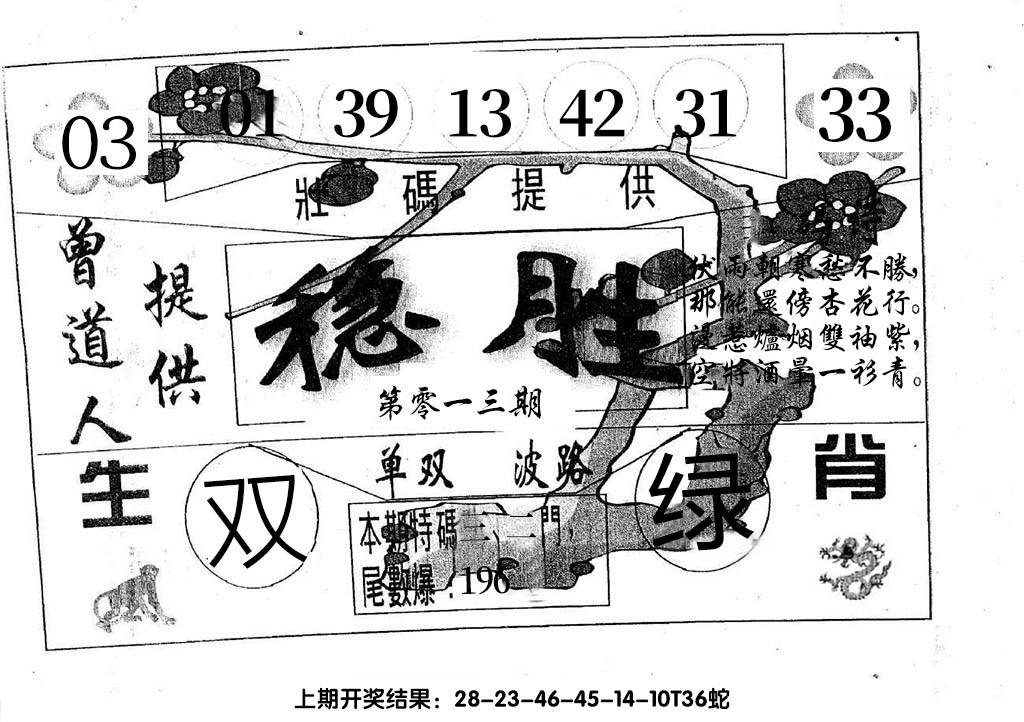 03 01 39 13 42 31 33
壯碼提供
特
曾道人
提供
稳胜
第零一三期
伏雨朝寒愁不勝，
那能還傍杏花行。
漫惹爐烟雙袖紫，
空将酒暈一衫青。
单双 波路
生肖
双
绿
本期特碼三、二門，
尾數爆：196
上期开奖结果：28-23-46-45-14-10T36蛇